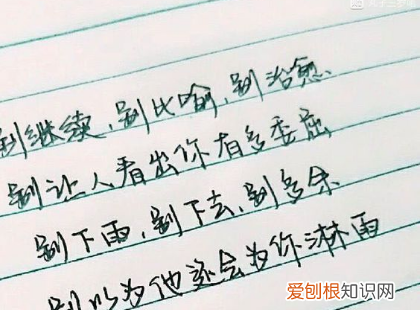 别继续,别比喻,别治愈
别让人看出你有多委屈
别下雨,别下去,别多余
别以为他还会为你淋雨
爱刨根知识网